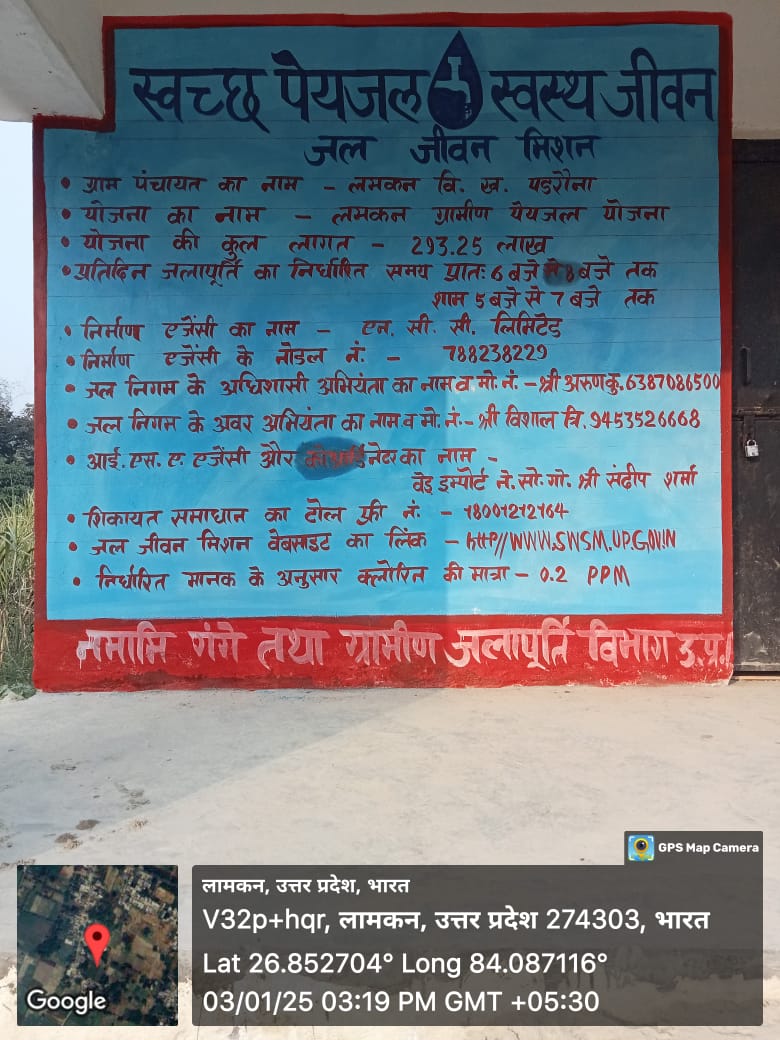 स्वच्छ पेयजल स्वस्थ जीवन
जल जीवन मिशन
• ग्राम पंचायत का नाम – लमकन वि. ख. पडरौना
• योजना का नाम – लमकन ग्रामीण पेयजल योजना
• योजना की कुल लागत – 293.25 लाख
• प्रतिदिन जलापूर्ति का निर्धारित समय प्रातः 6 बजे से 8 बजे तक
शाम 5 बजे से 7 बजे तक
• निर्माण एजेंसी का नाम – एन. सी. सी. लिमिटेड
• निर्माण एजेंसी के नोडल नं. – 788238229
• जल निगम के अधिशासी अभियंता का नाम व मो. नं. – श्री अरुण कु. 6387086500
• जल निगम के अवर अभियंता का नाम व मो. नं. – श्री विशाल त्रि. 9453526668
• आई. एस. ए. एजेंसी और नेटर का नाम –
वेइ इम्पोर्ट ने. सो. गो. श्री संदीप शर्मा
• शिकायत समाधान का टोल फ्री नं. – 18001212164
• जल जीवन मिशन वेबसाइट का लिंक – http//WWW.SWSM.UP.GOV.IN
• निर्धारित मानक के अनुसार क्लोरिन की मात्रा – 0.2 PPM
नमामि गंगे तथा ग्रामीण जलापूर्ति विभाग उ.प्र.
GPS Map Camera
लामकन, उत्तर प्रदेश, भारत
V32p+hqr, लामकन, उत्तर प्रदेश 274303, भारत
Lat 26.852704° Long 84.087116°
03/01/25 03:19 PM GMT +05:30
Google